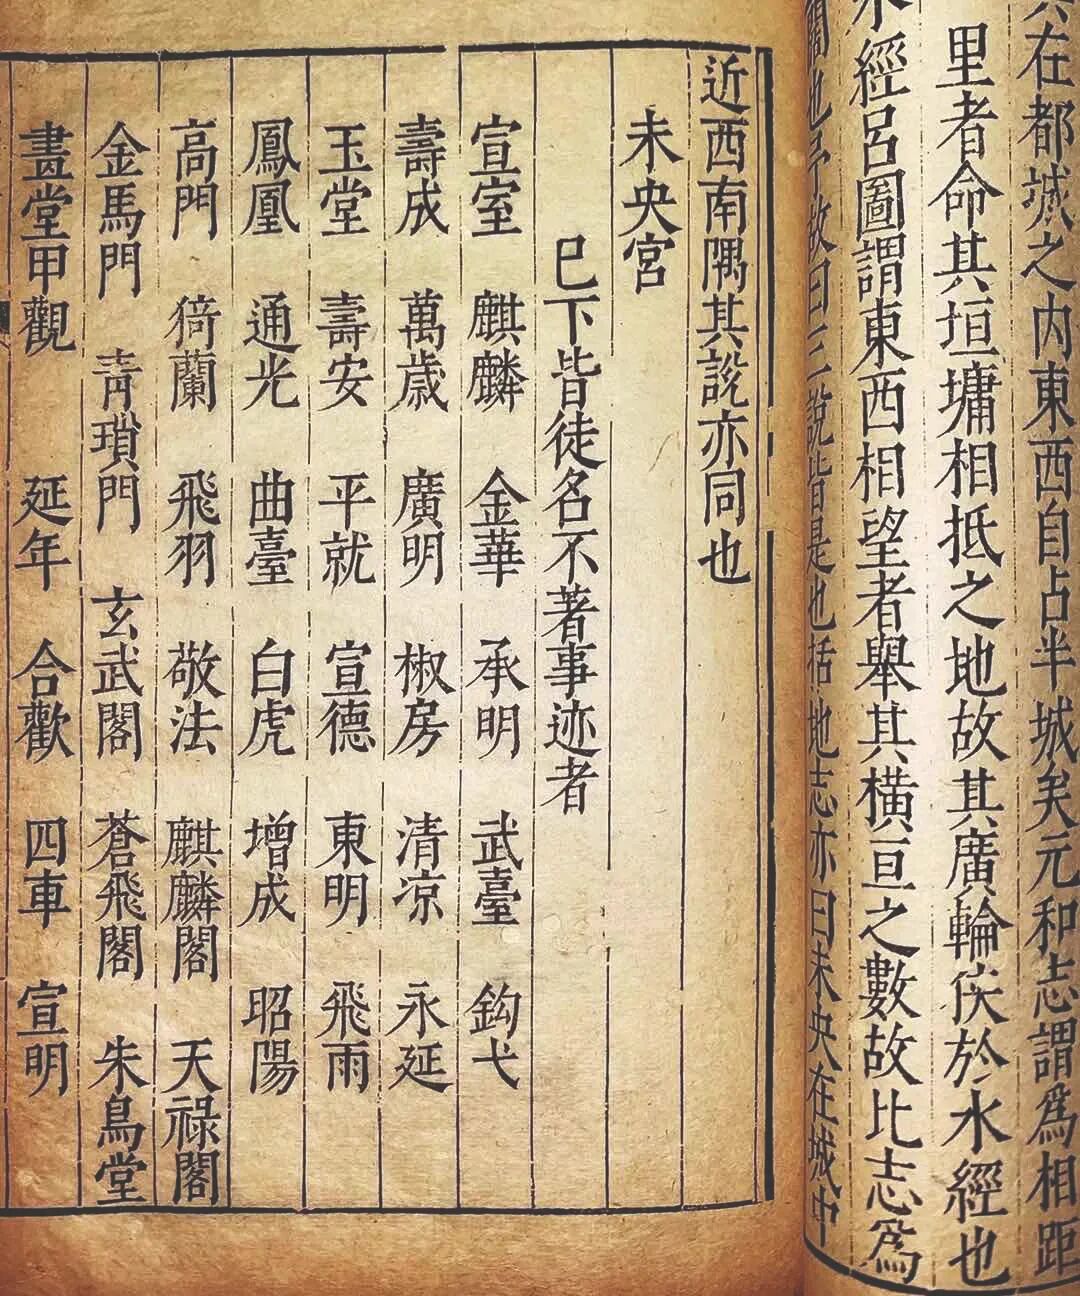 在都城之內東西自占半城矣元和志謂爲相距
里者命其垣墉相抵之地故其廣輪侈於水經也
水經呂圖謂東西相望者舉其橫亘之數故比志爲
闊也予故曰三說皆是也括地志亦曰未央在城中
近西南隅其說亦同也
未央宮
巳下皆徒名不著事迹者
宣室 麒麟 金華 承明 武臺 鈎弋
壽成 萬歲 廣明 椒房 清凉 永延
玉堂 壽安 平就 宣德 東明 飛雨
鳳凰 通光 曲臺 白虎 增成 昭陽
高門 猗蘭 飛羽 敬法 麒麟閣 天祿閣
金馬門 青瑣門 玄武閣 蒼飛閣 朱鳥堂
畫堂甲觀 延年 合歡 四車 宣明